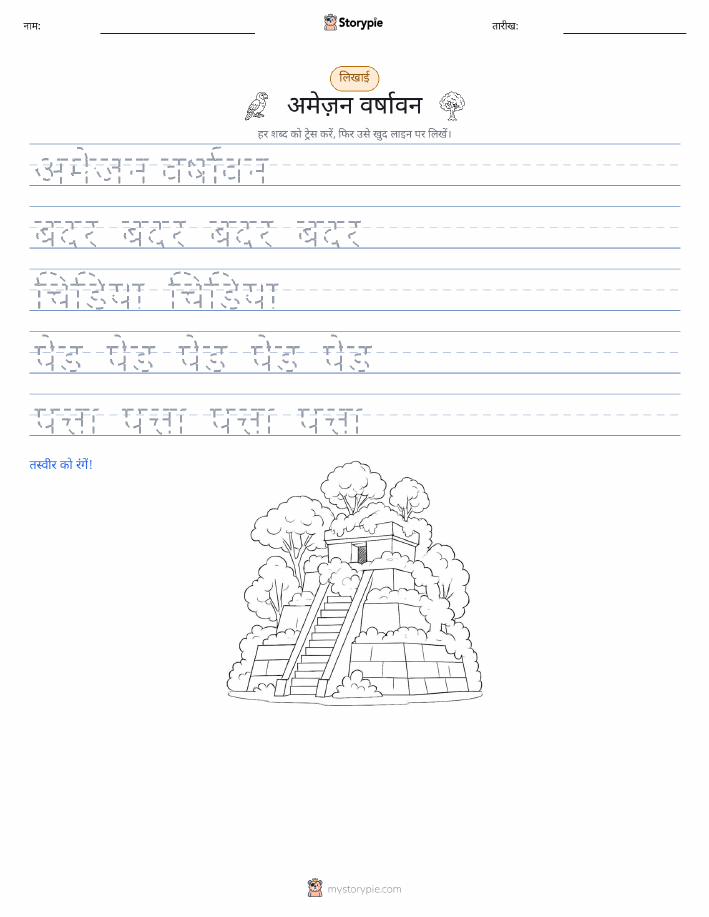 नाम:
Storypie
तारीख:
लिखाई
अमेज़न वर्षावन
हर शब्द को ट्रेस करें, फिर उसे खुद लाइन पर लिखें।
अमेजन वर्षावन
बदर बदर बदर बदर
चिडिया चिडिया
पेड पेड पेड पेड पेड
पत्ता पत्ता पत्ता पत्ता
तस्वीर को रंगें!
mystorypie.com